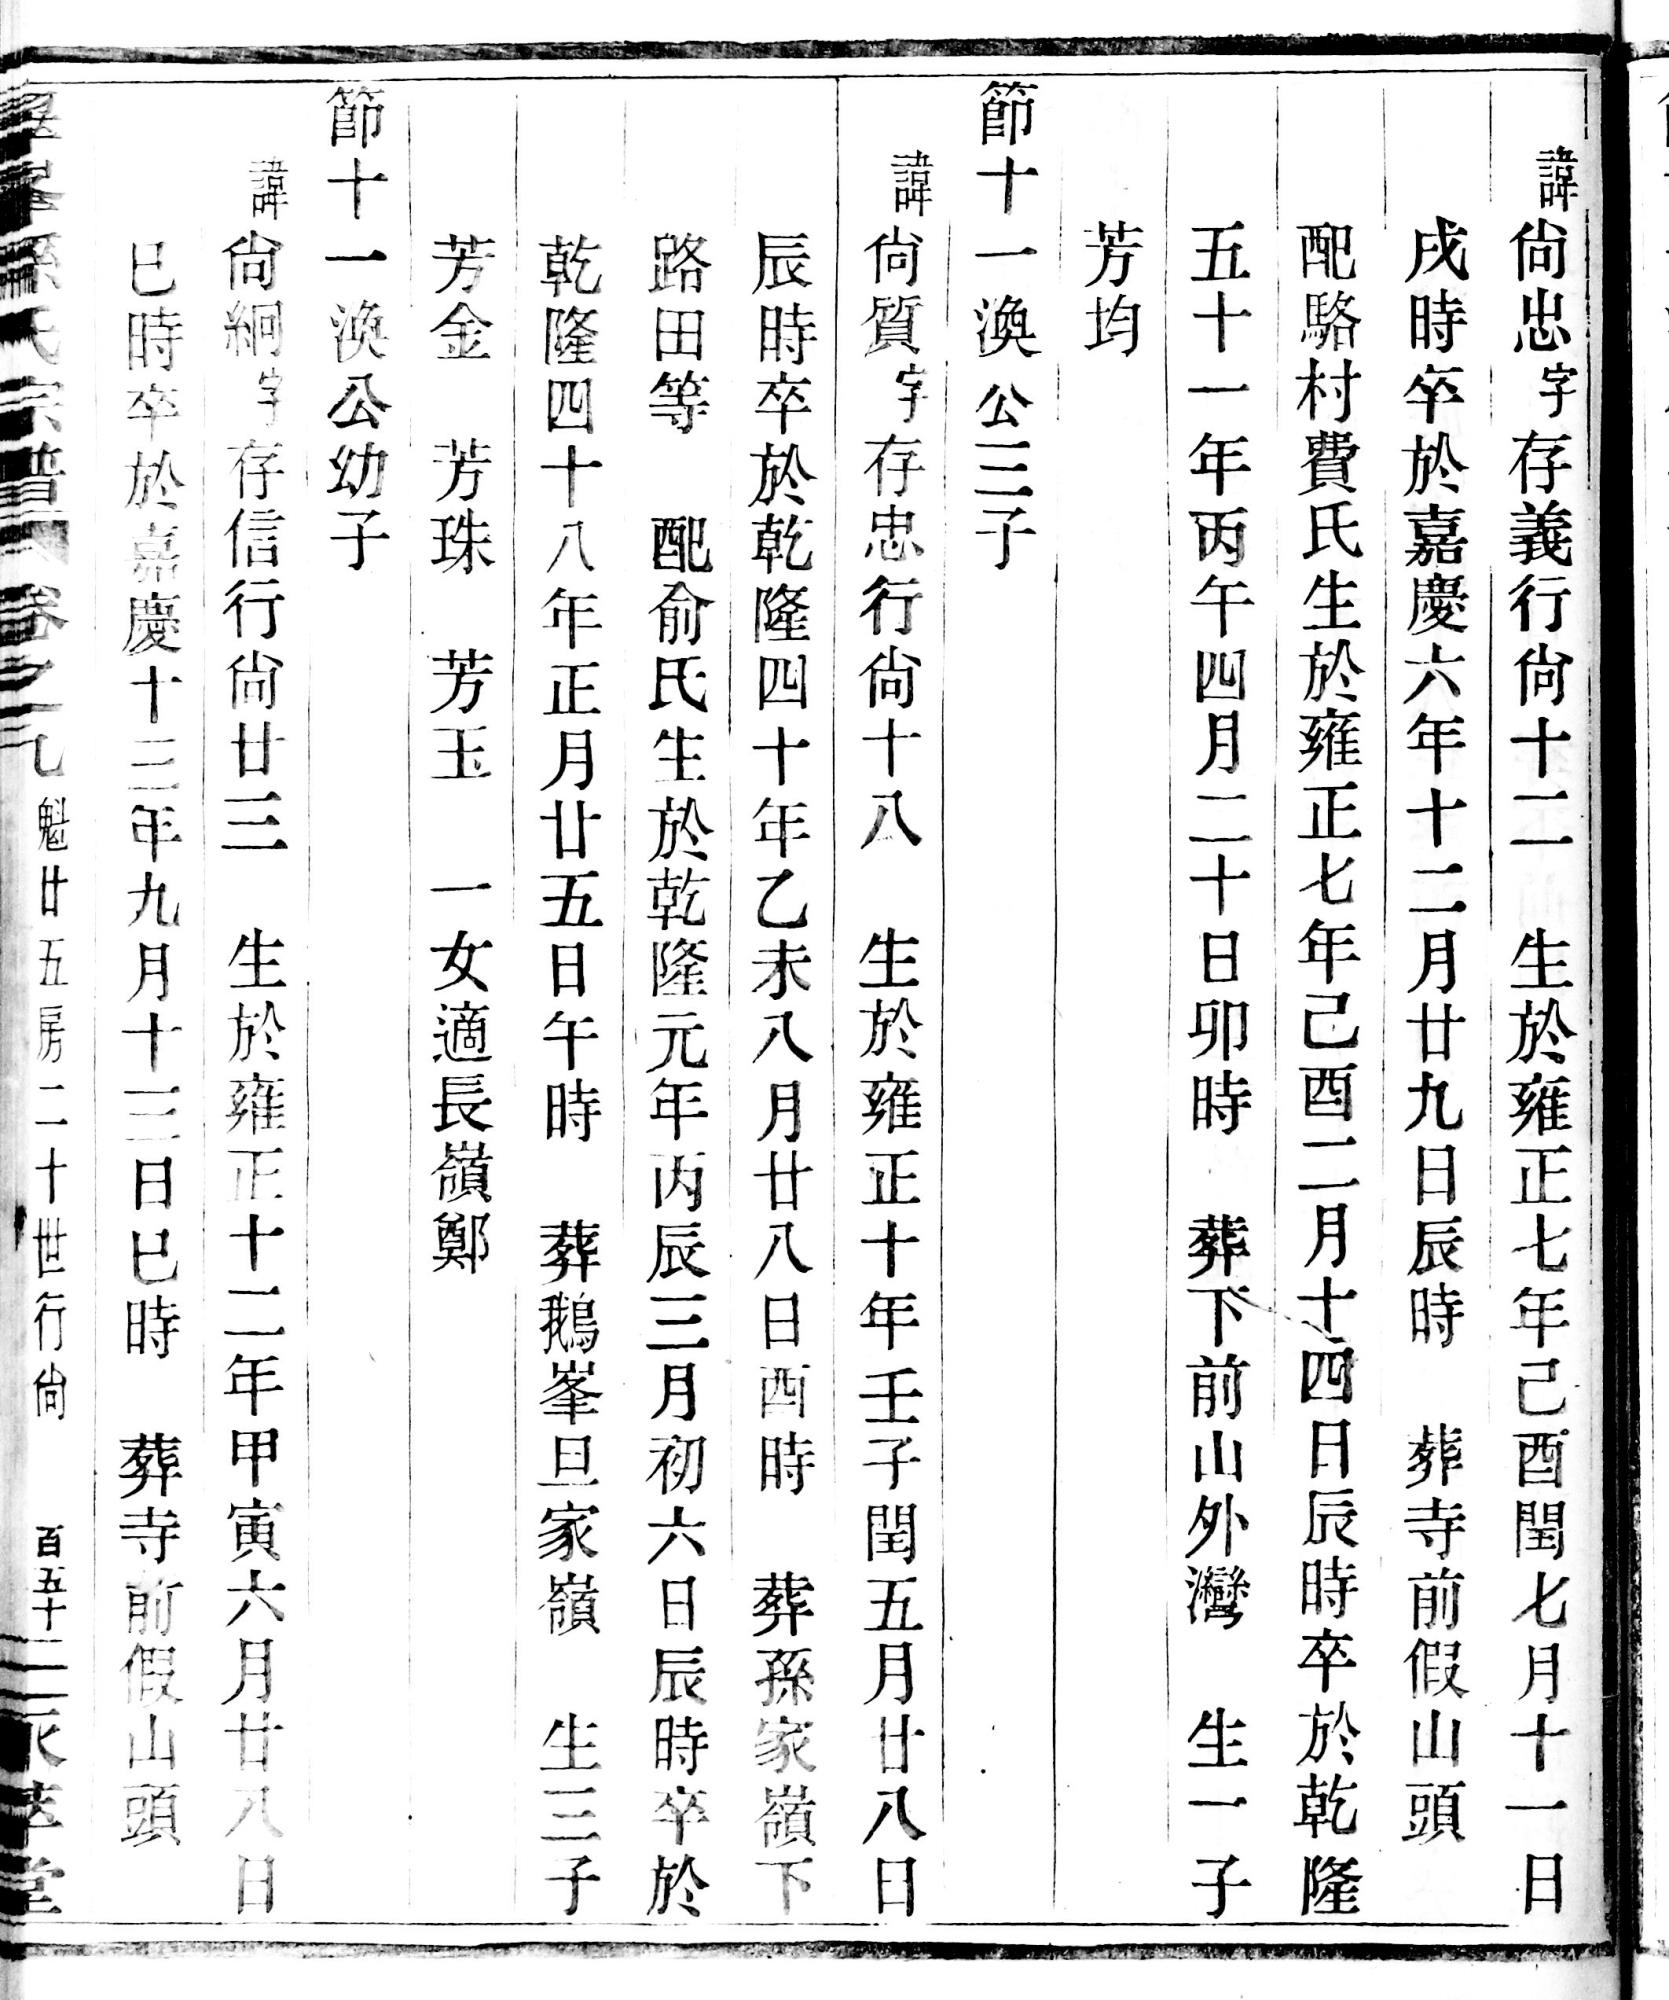 諱尙忠字存義行尙十二　生於雍正七年己酉閏七月十一日
戌時卒於嘉慶六年十二月廿九日辰時　葬寺前假山頭
配駱村費氏生於雍正七年己酉二月十四日辰時卒於乾隆
五十一年丙午四月二十日卯時　葬下前山外灣　生一子
芳均
節十一渙公三子
諱尙質字存忠行尙十八　生於雍正十年壬子閏五月廿八日
辰時卒於乾隆四十年乙未八月廿八日酉時　葬孫家嶺下
路田等　配俞氏生於乾隆元年丙辰三月初六日辰時卒於
乾隆四十八年正月廿五日午時　葬鵝峯旦家嶺　生三子
芳金　芳珠　芳玉　一女適長嶺鄭
節十一渙公幼子
諱尙絅字存信行尙廿三　生於雍正十二年甲寅六月廿八日
巳時卒於嘉慶十三年九月十三日巳時　葬寺前假山頭
孫氏宗普卷之九　魁廿五房二十世行尙　百五十二　萃堂